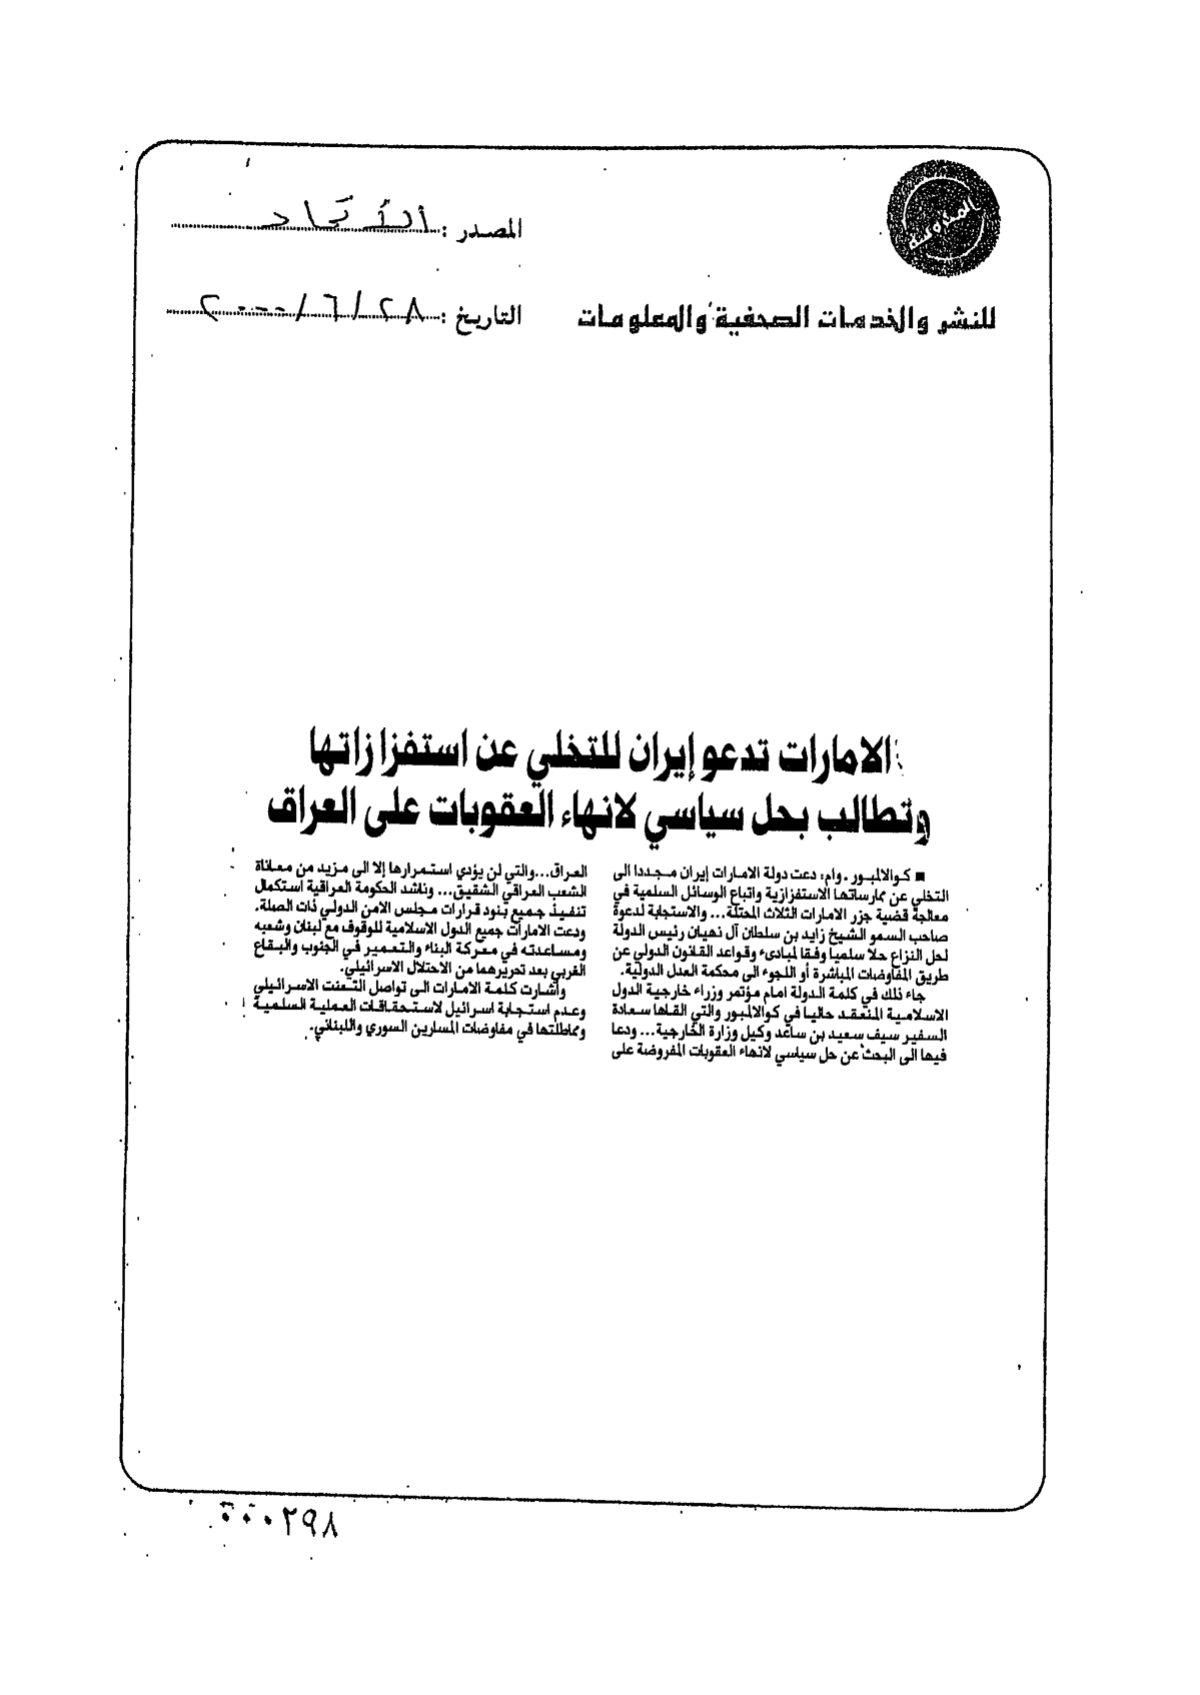 المصدر : الاتحاد
للنشر والخدمات الصحفية والمعلومات
التاريخ : ٢٨/٦/٢٠٠٠
الامارات تدعو إيران للتخلي عن استفزازاتها
وتطالب بحل سياسي لانهاء العقوبات على العراق
■ كوالالمبور ـ وام: دعت دولة الامارات إيران مجددا الى
التخلي عن ممارساتها الاستفزازية واتباع الوسائل السلمية في
معالجة قضية جزر الامارات الثلاث المحتلة... والاستجابة لدعوة
صاحب السمو الشيخ زايد بن سلطان آل نهيان رئيس الدولة
لحل النزاع حلا سلميا وفقا لمبادىء وقواعد القانون الدولي عن
طريق المفاوضات المباشرة أو اللجوء الى محكمة العدل الدولية.
جاء ذلك في كلمة الدولة امام مؤتمر وزراء خارجية الدول
الاسلامية المنعقد حاليا في كوالالمبور والتي القاها سعادة
السفير سيف سعيد بن ساعد وكيل وزارة الخارجية... ودعا
فيها الى البحث عن حل سياسي لانهاء العقوبات المفروضة على
العراق...والتي لن يؤدي استمرارها إلا الى مزيد من معاناة
الشعب العراقي الشقيق... وناشد الحكومة العراقية استكمال
تنفيذ جميع بنود قرارات مجلس الامن الدولي ذات الصلة.
ودعت الامارات جميع الدول الاسلامية للوقوف مع لبنان وشعبه
ومساعدته في معركة البناء والتعمير في الجنوب والبقاع
الغربي بعد تحريرهما من الاحتلال الاسرائيلي.
وأشارت كلمة الامارات الى تواصل التعنت الاسرائيلي
وعدم استجابة اسرائيل لاستحقاقات العملية السلمية
ومماطلتها في مفاوضات المسارين السوري واللبناني.
٠٠٠٢٩٨